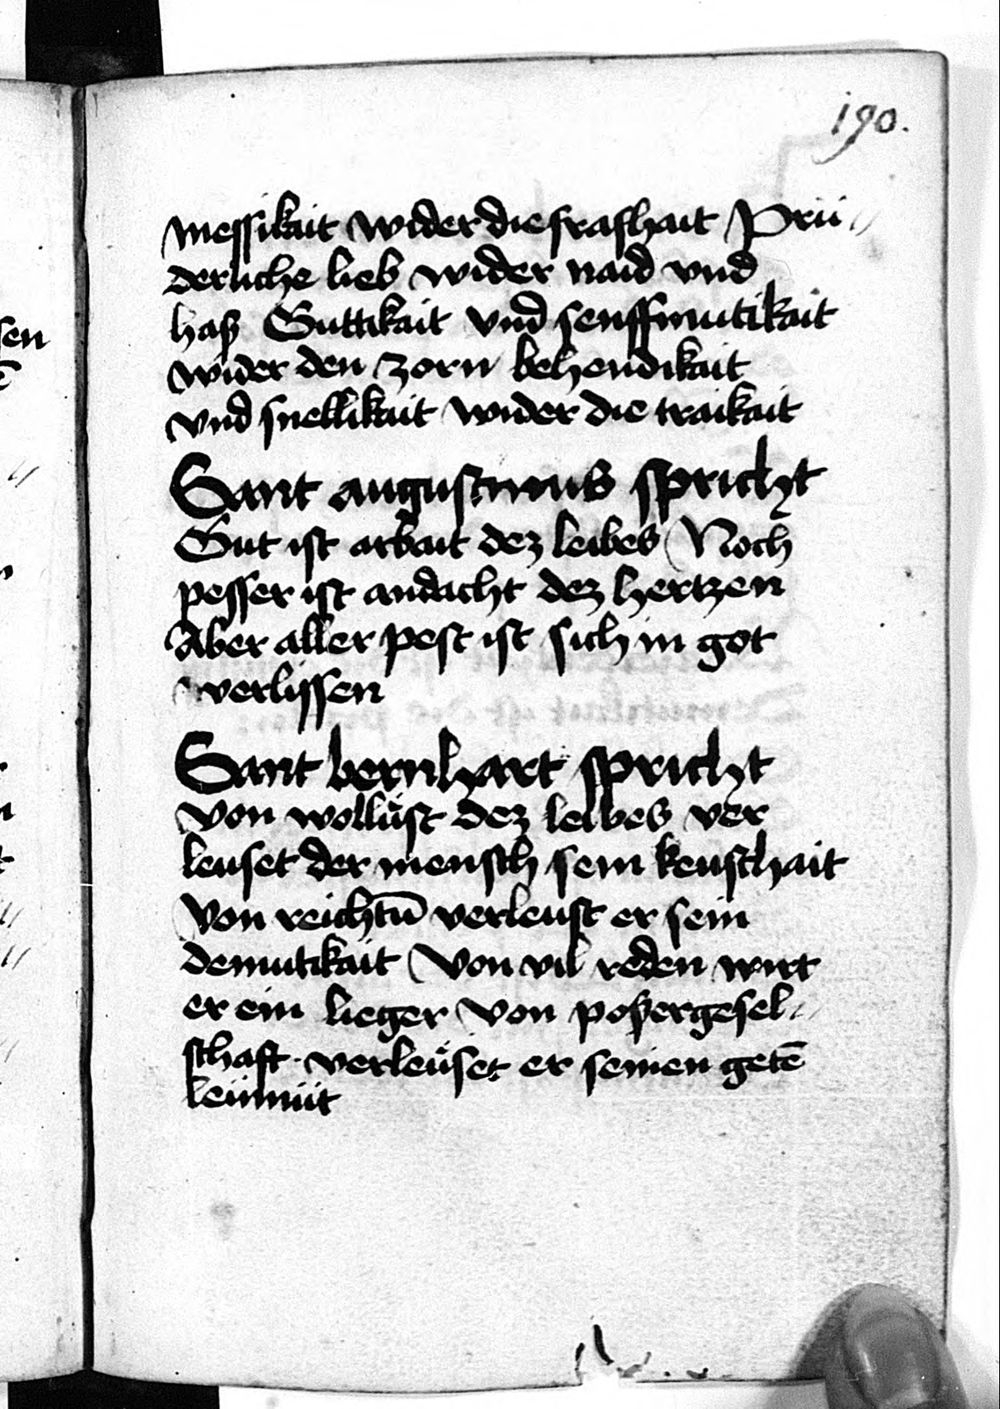 190.
messikait wider die frashait Prü//
derliche lieb wider naid vnd
haß Guttikait vnd senfftmutikait
wider den zorn behendikait
vnd snellikait wider die traikait
Sant augustinus spricht
Gut ist arbait dez leibes Noch
pesser ist andacht dez hertzen
Aber aller pest ist sich in got
verlissen
Sant bernhart spricht
von wollüst dez leibes ver
leuset der mensch sein keuschait
Von reichtū verleust er sein
demutikait Von vil reden wirt
er ein lieger Von poßer gesel//
schaft verleüset er seinen getē
leümüt
sen